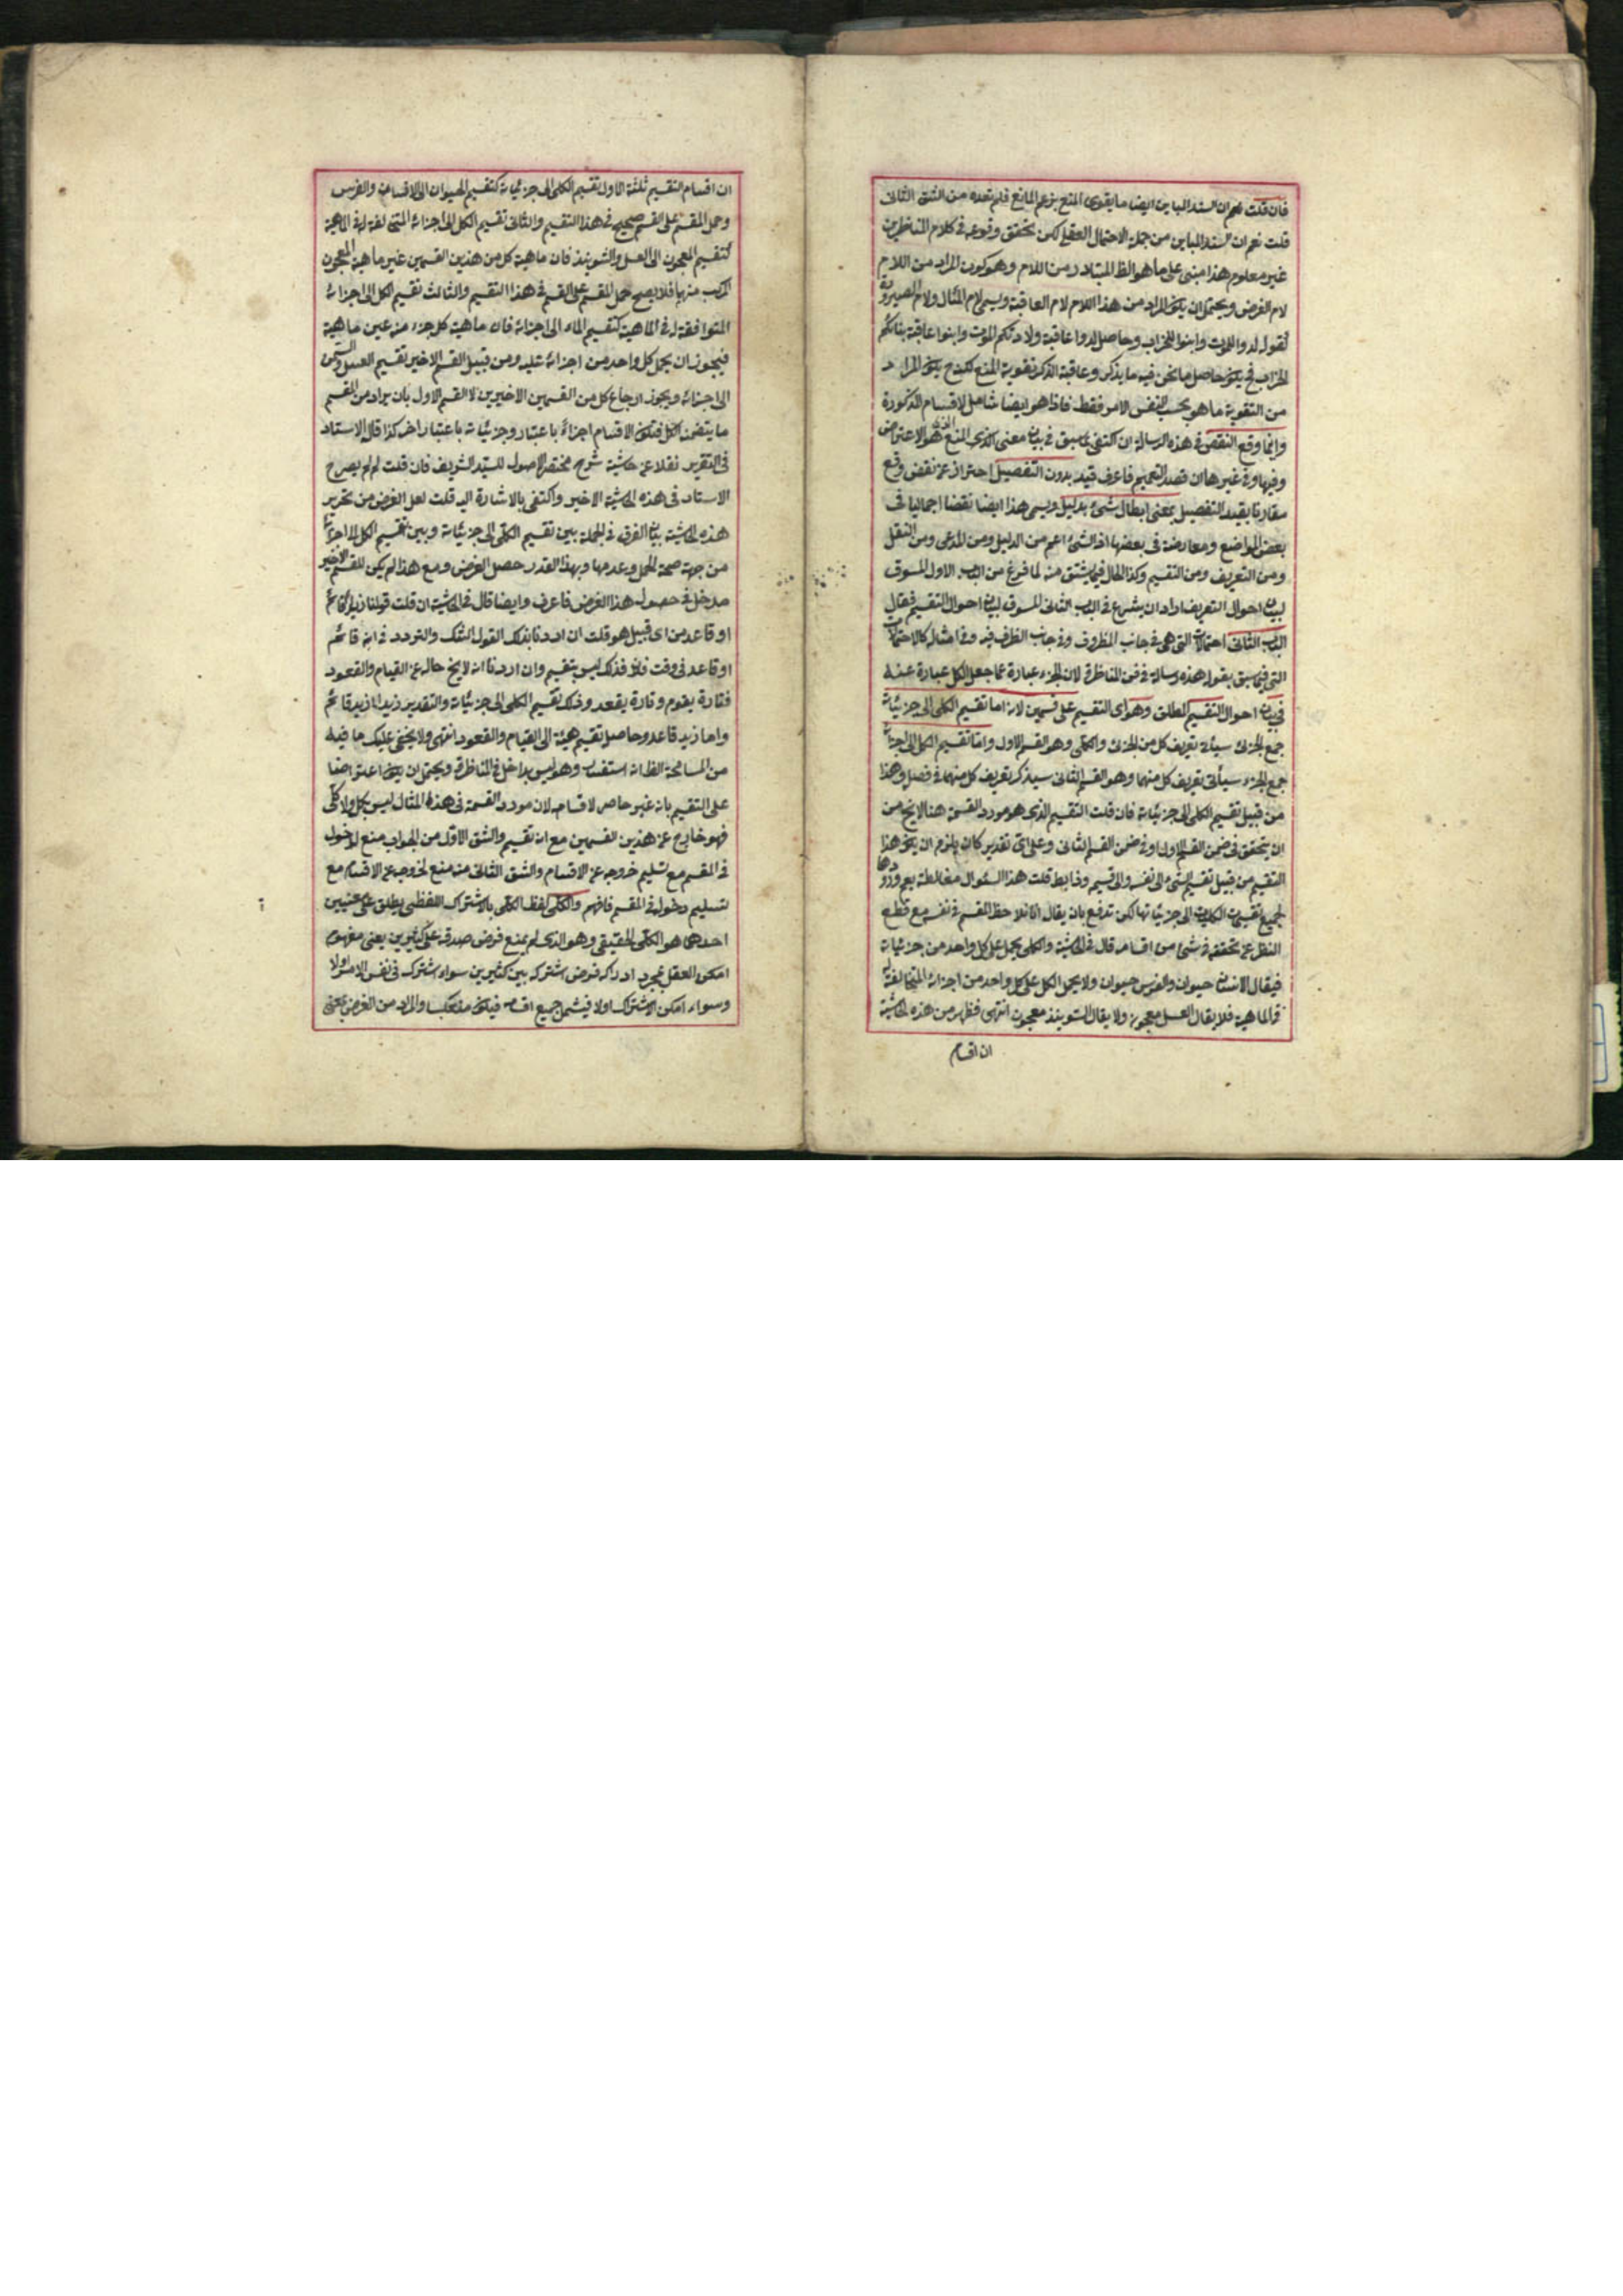 فان قلت نعم ان السند المباين ايضا ما يقوى المنع بزعم المانع فلم تعده من الشق الثانى
قلت نعم ان السند المباين من جملة الاحتمال العقلى لكن تحقق وقوعه فى كلام المناظرين
غير معلوم هذا مبنى على ما هو الظ المتبادر من اللام وهو كون المراد من اللام
لام الغرض ويحتمل ان يكون المراد من هذا اللام لام العاقبة ويسمى لام المآل ولام الصيرورة
كقوله لدوا للموت وابنوا للخراب وحاصل لدوا عاقبة ولادتكم الموت وابنوا عاقبة بنائكم
الخراب فح يكون حاصل ما نحن فيه ما يذكر وعاقبة الذكر تقوية المنع فح يكون المراد
من التقوية ما هو بحسب النفس الامر فقط فاذا هو ايضا شامل لاقسام المذكورة
وانما وقع النقض فى هذه الرسالة ان اكتفى بما سبق فى بيان معنى المنع هو الاعتراض
وفيها وفى غيرها ان قصد التعميم فاعرف قيد بدون التفصيل احتراز عن نقض وقع
مقارنا بقيد التفصيل بمعنى ابطال شئ بدليل ويسمى هذا ايضا نقضا اجماليا فى
بعض المواضع ومعارضة فى بعضها اذ الشئ اعم من الدليل ومن المدعى ومن النقل
ومن التعريف ومن التقسيم وكذا الحال فيما يشتق منه لما فرغ من الباب الاول المسوق
لبيان احوال التعريف اراد ان يشرع فى الباب الثانى المسوق لبيان احوال التقسيم فقال
الباب الثانى احتمالات التى هى فى جانب المظروف وفى جانب الظرف فيه وفى امثاله كالاحتمالات
التى فيما سبق بقوله هذه رسالة فى فن المناظرة لان الجزء عبارة عما جعل الكل عبارة عنه
فى بيان احوال التقسيم المطلق وهو اى التقسيم على قسمين لانه اما تقسيم الكلى الى جزئياته
جمع الجزئى سيأتى تعريف كل من الجزئى والكلى وهو القسم الاول واما تقسيم الكل الى اجزائه
جمع الجزء سيأتى تعريف كل منهما وهو القسم الثانى سيذكر تعريف كل منهما فى فصل وهذا
من قبيل تقسيم الكلى الى جزئياته فان قلت التقسيم الذى هو مورد القسمة هنا لا يخ من
ان يتحقق فى ضمن القسم الاول او فى ضمن القسم الثانى وعلى اى تقدير كان يلزم ان يكون هذا
التقسيم من قبيل تقسيم الشئ الى نفسه والى قسيمه وذا بط قلت هذا السئوال مغالطة يعم ورودها
لجميع تقسيمات الكليات الى جزئياتها لكن تدفع بان يقال انا نلاحظ المقسم فى نفسه مع قطع
النظر عن تحققه فى شئ من اقسامه قال فى الحاشية والكلى يحمل على كل واحد من جزئياته
فيقال الانسان حيوان والفرس حيوان ولا يحمل الكل على كل واحد من اجزائه المتخالفة
فى الماهية فلا يقال العسل معجون ولا يقال الشونيذ معجون انتهى فظهر من هذه الحاشية
ان اقسام
ان اقسام التقسيم ثلثة الاول تقسيم الكلى الى جزئياته كتقسيم الحيوان الى الانسان والفرس
وحمل المقسم على القسم صحيح فى هذا التقسيم والثانى تقسيم الكل الى اجزائه المتخالفة له فى الماهية
كتقسيم المعجون الى العسل والشونيذ فان ماهية كل من هذين القسمين غير ماهية المعجون
المركب منهما فلا يصح حمل المقسم على القسم فى هذا التقسيم والثالث تقسيم الكل الى اجزائه
المتوافقة له فى الماهية كتقسيم الماء الى اجزائه فان ماهية كل جزء منه عين ماهية
فيجوز ان يحمل كل واحد من اجزائه عليه ومن قبيل القسم الاخير تقسيم العسل والسمن
الى اجزائه ويجوز ارجاع كل من القسمين الاخيرين لا القسم الاول بان يراد من المقسم
ما يتضمن الكل فتكون الاقسام اجزاءً باعتبار وجزئياته باعتبار اخر كذا قال الاستاد
فى التقرير نقلا عن حاشية شرح مختصر الاصول للسيد الشريف فان قلت لم لم يصرح
الاستاد فى هذه الحاشية الاخير واكتفى بالاشارة اليه قلت لعل الغرض من تحرير
هذه الحاشية بيان الفرق فى الجملة بين تقسيم الكلى الى جزئياته وبين تقسيم الكل الى اجزائه
من جهة صحة الحمل وعدمها وبهذا القدر حصل الغرض ومع هذا لم يكن للقسم الاخير
مدخل فى حصول هذا الغرض فاعرف وايضا قال فى الحاشية ان قلت قولنا زيد اما قائم
او قاعد من اى قبيل هو قلت ان اردنا بذلك القول الشك والتردد فى انه قائم
او قاعد فى وقت فلان فذلك ليس بتقسيم وان اردنا انه لا يخ حاله عن القيام والقعود
فتارة يقوم وتارة يقعد وذلك تقسيم الكلى الى جزئياته والتقدير زيد اما زيد قائم
واما زيد قاعد وحاصله تقسيم هيئة الى القيام والقعود انتهى ولا يخفى عليك ما فيه
من المسامحة الظ انه استفسار وهو ليس بداخل فى المناظرة ويحتمل ان يكون اعتراضا
على التقسيم بانه غير حاصر لاقسامه لان مورد القسمة فى هذا المثال ليس بكل ولا كلى
فهو خارج عن هذين القسمين مع انه تقسيم والشق الاول من الجواب منع لدخوله
فى المقسم مع تسليم خروجه عن الاقسام والشق الثانى منه منع لخروجه عن الاقسام مع
لتسليم دخوله فى المقسم فافهم والكلى لفظ الكلى بالاشتراك اللفظى يطلق على معنيين
احدهما هو الكلى الحقيقى وهو الذى لم يمنع فرض صدقه على كثيرين يعنى مفهوم
امكن العقل بمجرد ادراكه فرض اشتراكه بين كثيرين سواء اشترك فى نفس الامر اولا
وسواء امكن الاشتراك اولا فيشمل جميع اقسامه فيكون منعكسا والمراد من الفرض بمعنى